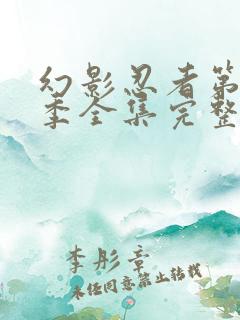 幻影忍者第
季全集完整
李彤章
未经同意禁止转载